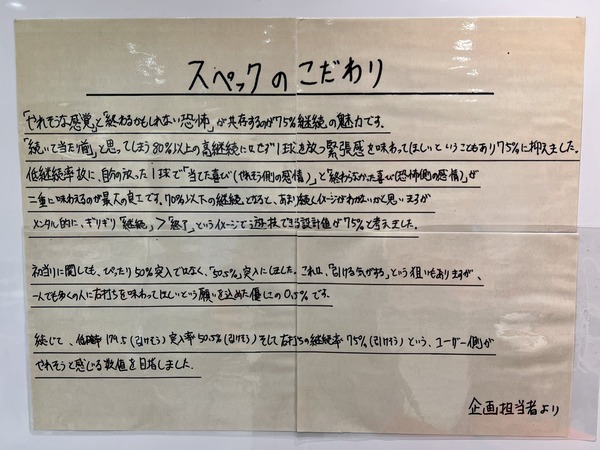 スペックのこだわり
「やれそうな感覚」と「終わるかもしれない恐怖」が共存するのが75%継続の魅力です。
「続いて当たり前」と思ってしまう80%以上の高継続にはせず1球を放つ緊張感を味わってほしいということもあり75%に抑えました。
低継続率故に、自分の放った1球で「当てた喜び(やれそう側の感情)」と「終わらなかった喜び(恐怖側の感情)」が
二重に味わえるのが最大の良さです。70%以下の継続となると、あまり続くイメージがわかないかと思いますが
メンタル的に、ギリギリ「継続」>「終了」というイメージで遊技できる設計値が75%と考えました。
初当りに関しても、ぴったり50%突入ではなく、「50.5%」突入にしました。これは、「引ける気がする」という狙いもありますが、
一人でも多くの人に右打ちを味わってほしいという願いを込めた優しさの0.5%です。
総じて、低確率179.5(引けそう)突入率50.5%(引けそう)そして右打ちの継続率75%(引けそう)という、ユーザー側が
やれそうと感じる数値を目指しました。
企画担当者より